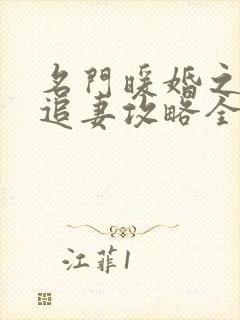 名門暖婚之
追妻攻略全
江菲1